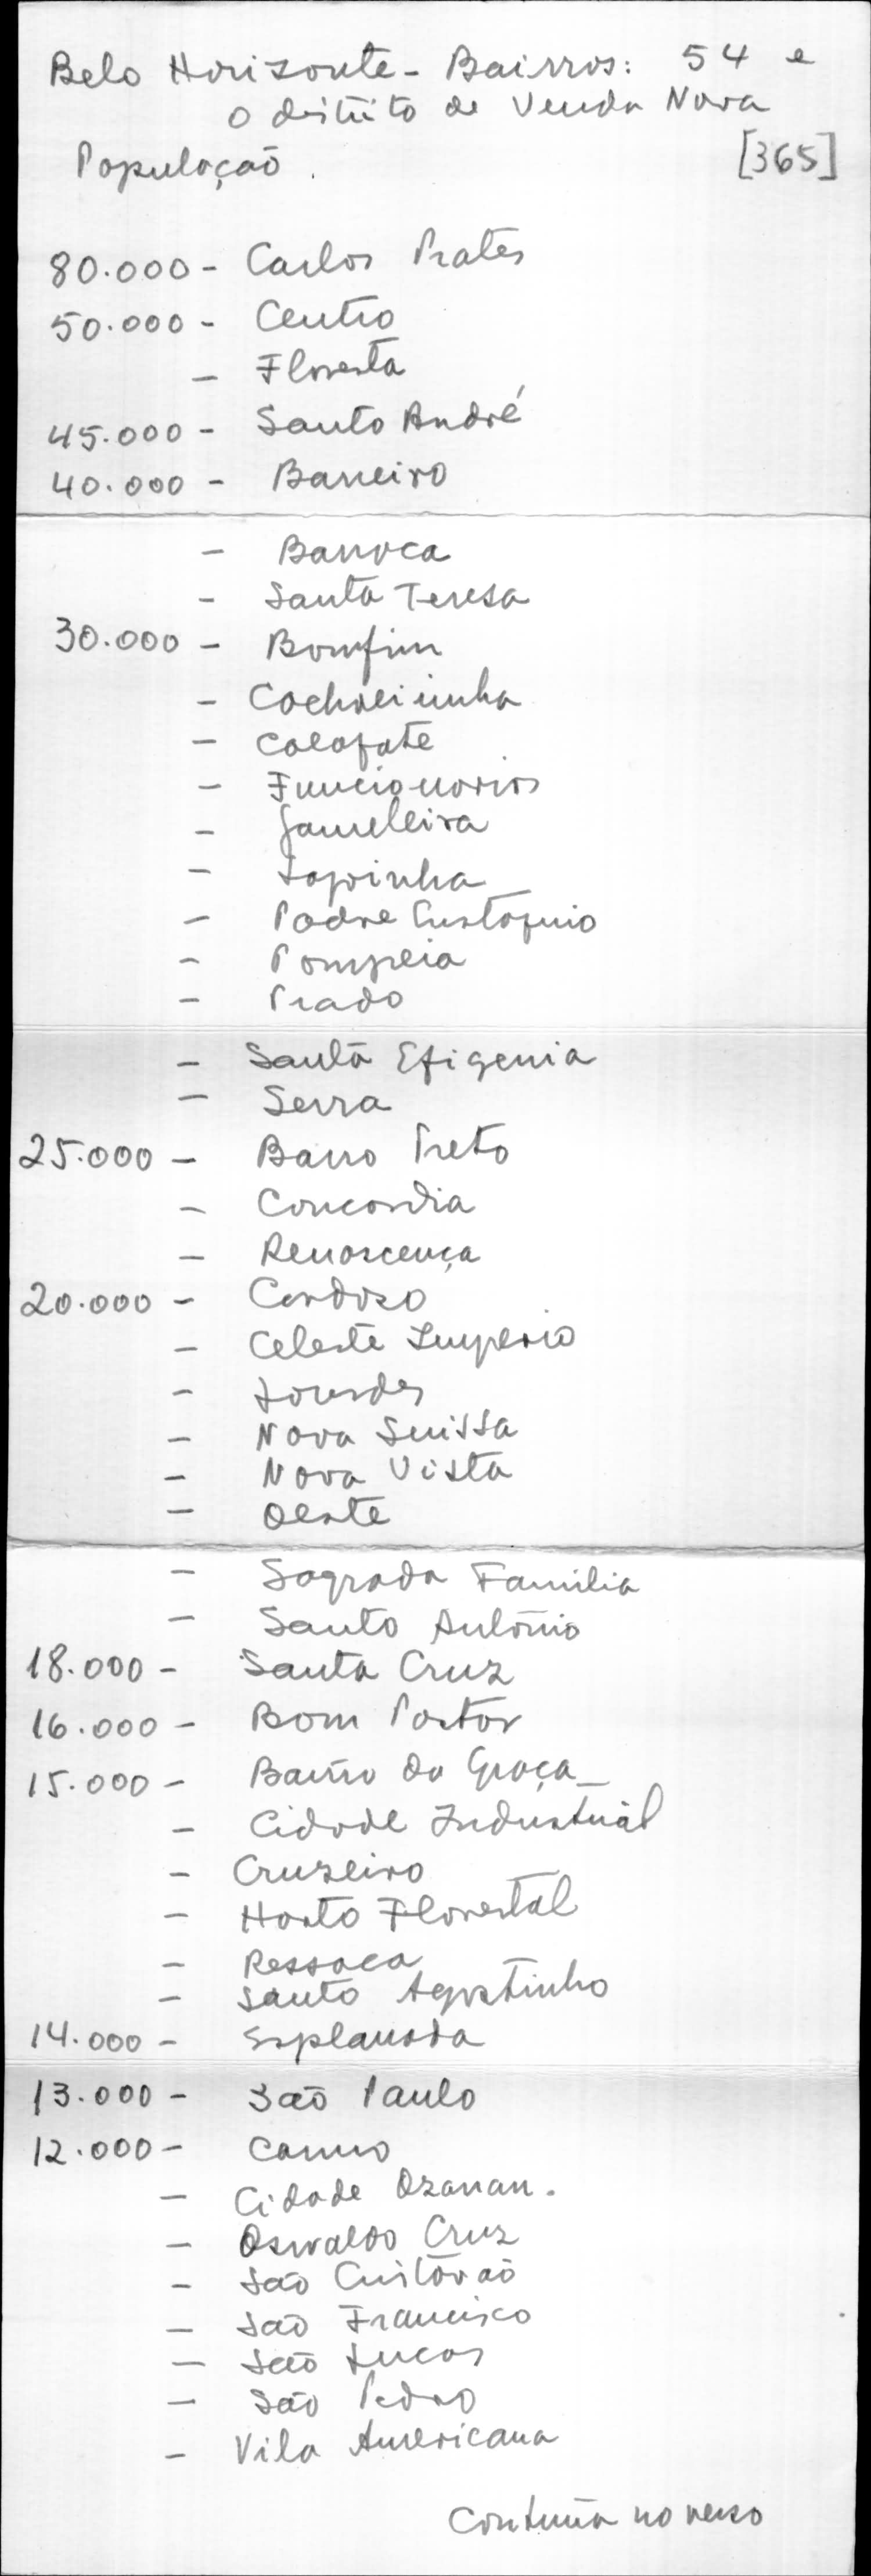 Belo Horizonte - Bairros: 54 e
o distrito de Venda Nova
[365]
População.
80.000 - Carlos Prates
50.000 - Centro
- Floresta
45.000 - Santo André
40.000 - Barreiro
- Barroca
- Santa Teresa
30.000 - Bomfim
- Cachoeirinha
- Calafate
- Funcionarios
- Gameleira
- Lagoinha
- Padre Eustáquio
- Pompeia
- Prado
- Santa Efigenia
- Serra
25.000 - Barro Preto
- Concordia
- Renascença
20.000 - Cardoso
- Celeste Imperio
- Lourdes
- Nova Suissa
- Nova Vista
- Oeste
- Sagrada Familia
- Santo Antônio
18.000 - Santa Cruz
16.000 - Bom Pastor
15.000 - Bairro da Graça
- Cidade Industrial
- Cruzeiro
- Horto Florestal
- Ressaca
- Santo Agostinho
14.000 - Esplanada
13.000 - São Paulo
12.000 - Carmo
- Cidade Ozanan.
- Oswaldo Cruz
- São Cristóvão
- São Francisco
- São Lucas
- São Pedro
- Vila Americana
Continua no verso